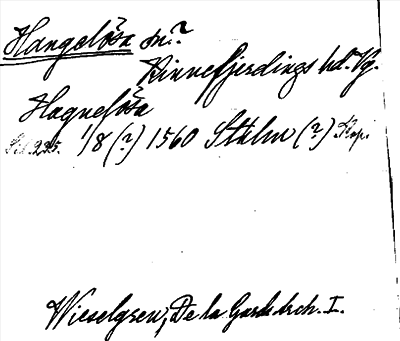 Hangelösa sn?
Kinnefjerdings hd. Vg.
Hagnelösa
S. 225. 1/8 (?) 1560 Sthlm (?) Kop.
Wieselgren, De la Gard. Arch. I.